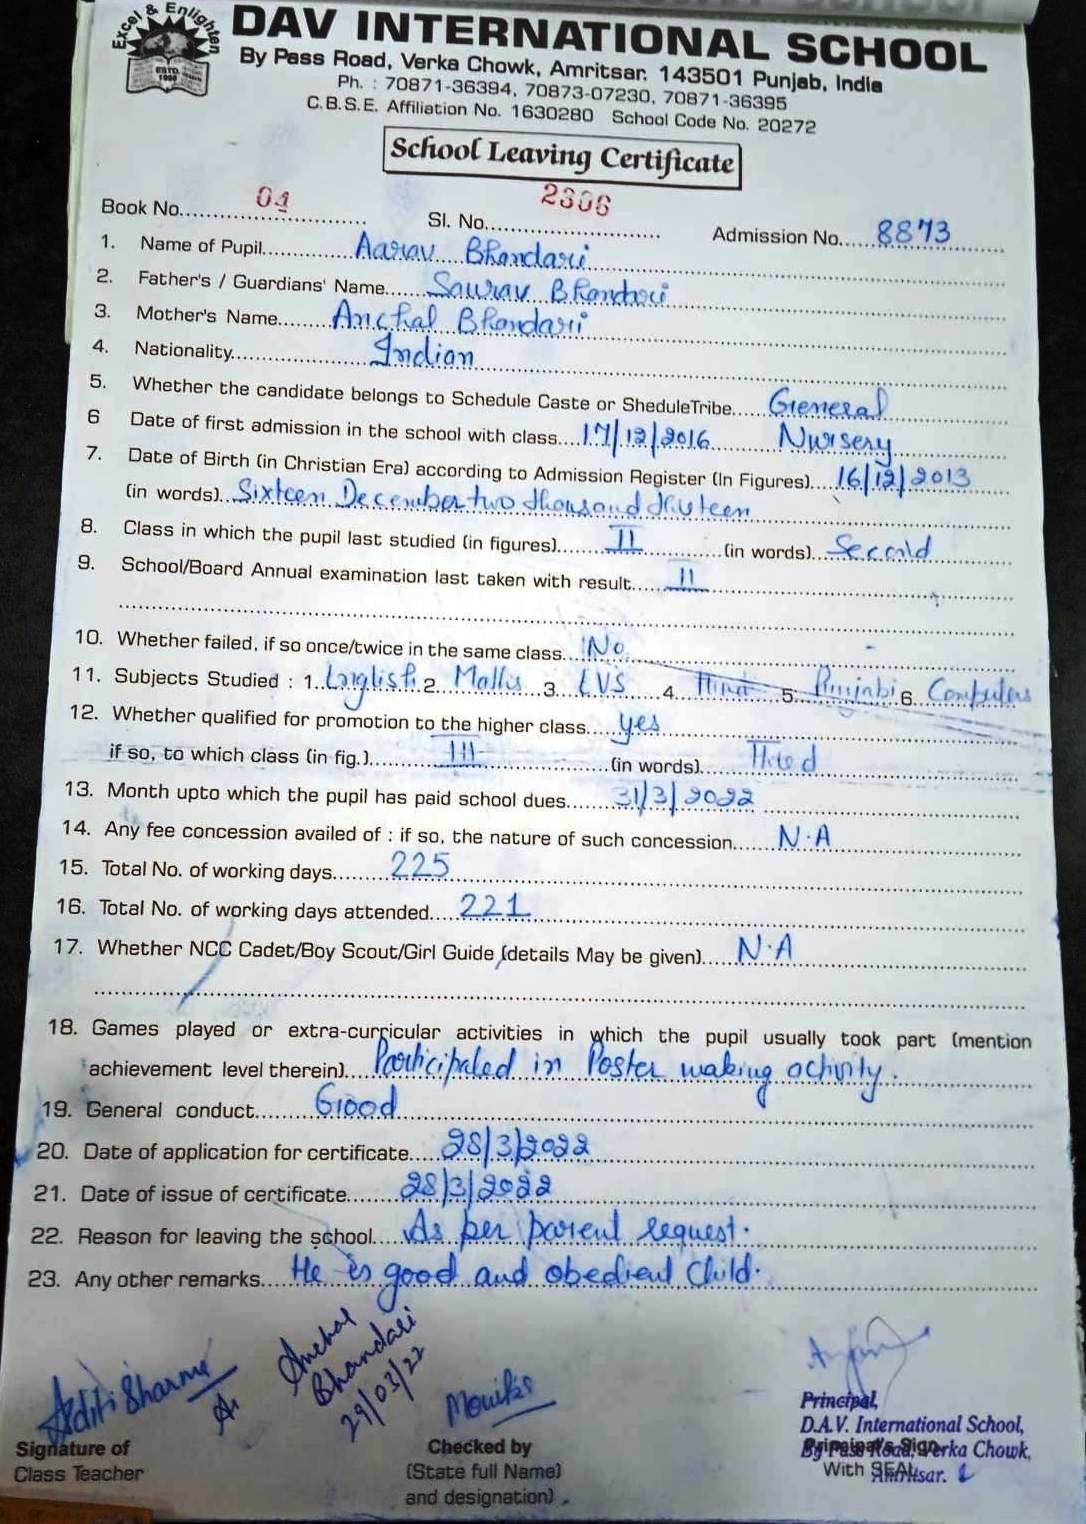 Excel & Enlighten
ESTD.
DAV INTERNATIONAL SCHOOL
By Pass Road, Verka Chowk, Amritsar. 143501 Punjab, India
Ph. : 70871-36394, 70873-07230, 70871-36395
C.B.S.E. Affiliation No. 1630280 School Code No. 20272
School Leaving Certificate
Book No. 04 Sl. No. 2306 Admission No. 8873
1. Name of Pupil Aarav Bhandari
2. Father's / Guardians' Name Saurav Bhandari
3. Mother's Name Anchal Bhandari
4. Nationality Indian
5. Whether the candidate belongs to Schedule Caste or SheduleTribe General
6 Date of first admission in the school with class 17/12/2016 Nursery
7. Date of Birth (in Christian Era) according to Admission Register (In Figures) 16/12/2013
(in words) Sixteen December two thousand thirteen
8. Class in which the pupil last studied (in figures) II (in words) Second
9. School/Board Annual examination last taken with result II
10. Whether failed, if so once/twice in the same class No
11. Subjects Studied : 1. English 2. Maths 3. EVS 4. Hindi 5. Punjabi 6. Computers
12. Whether qualified for promotion to the higher class yes
if so, to which class (in fig.) III (in words) Third
13. Month upto which the pupil has paid school dues 31/3/2022
14. Any fee concession availed of : if so, the nature of such concession N.A
15. Total No. of working days 225
16. Total No. of working days attended 221
17. Whether NCC Cadet/Boy Scout/Girl Guide (details May be given) N.A
18. Games played or extra-curricular activities in which the pupil usually took part (mention
achievement level therein) Participated in Poster making activity.
19. General conduct Good
20. Date of application for certificate 28/3/2022
21. Date of issue of certificate 28/3/2022
22. Reason for leaving the school As per parent request.
23. Any other remarks He is good and obedient Child.
Aditi Sharma
Anchal
Bhandari
29/03/22
Monika
Principal,
D.A.V. International School,
By Pass Road, Verka Chowk,
Amritsar.
Signature of
Class Teacher
Checked by
(State full Name)
and designation)
Principal's Sign
With SEAL